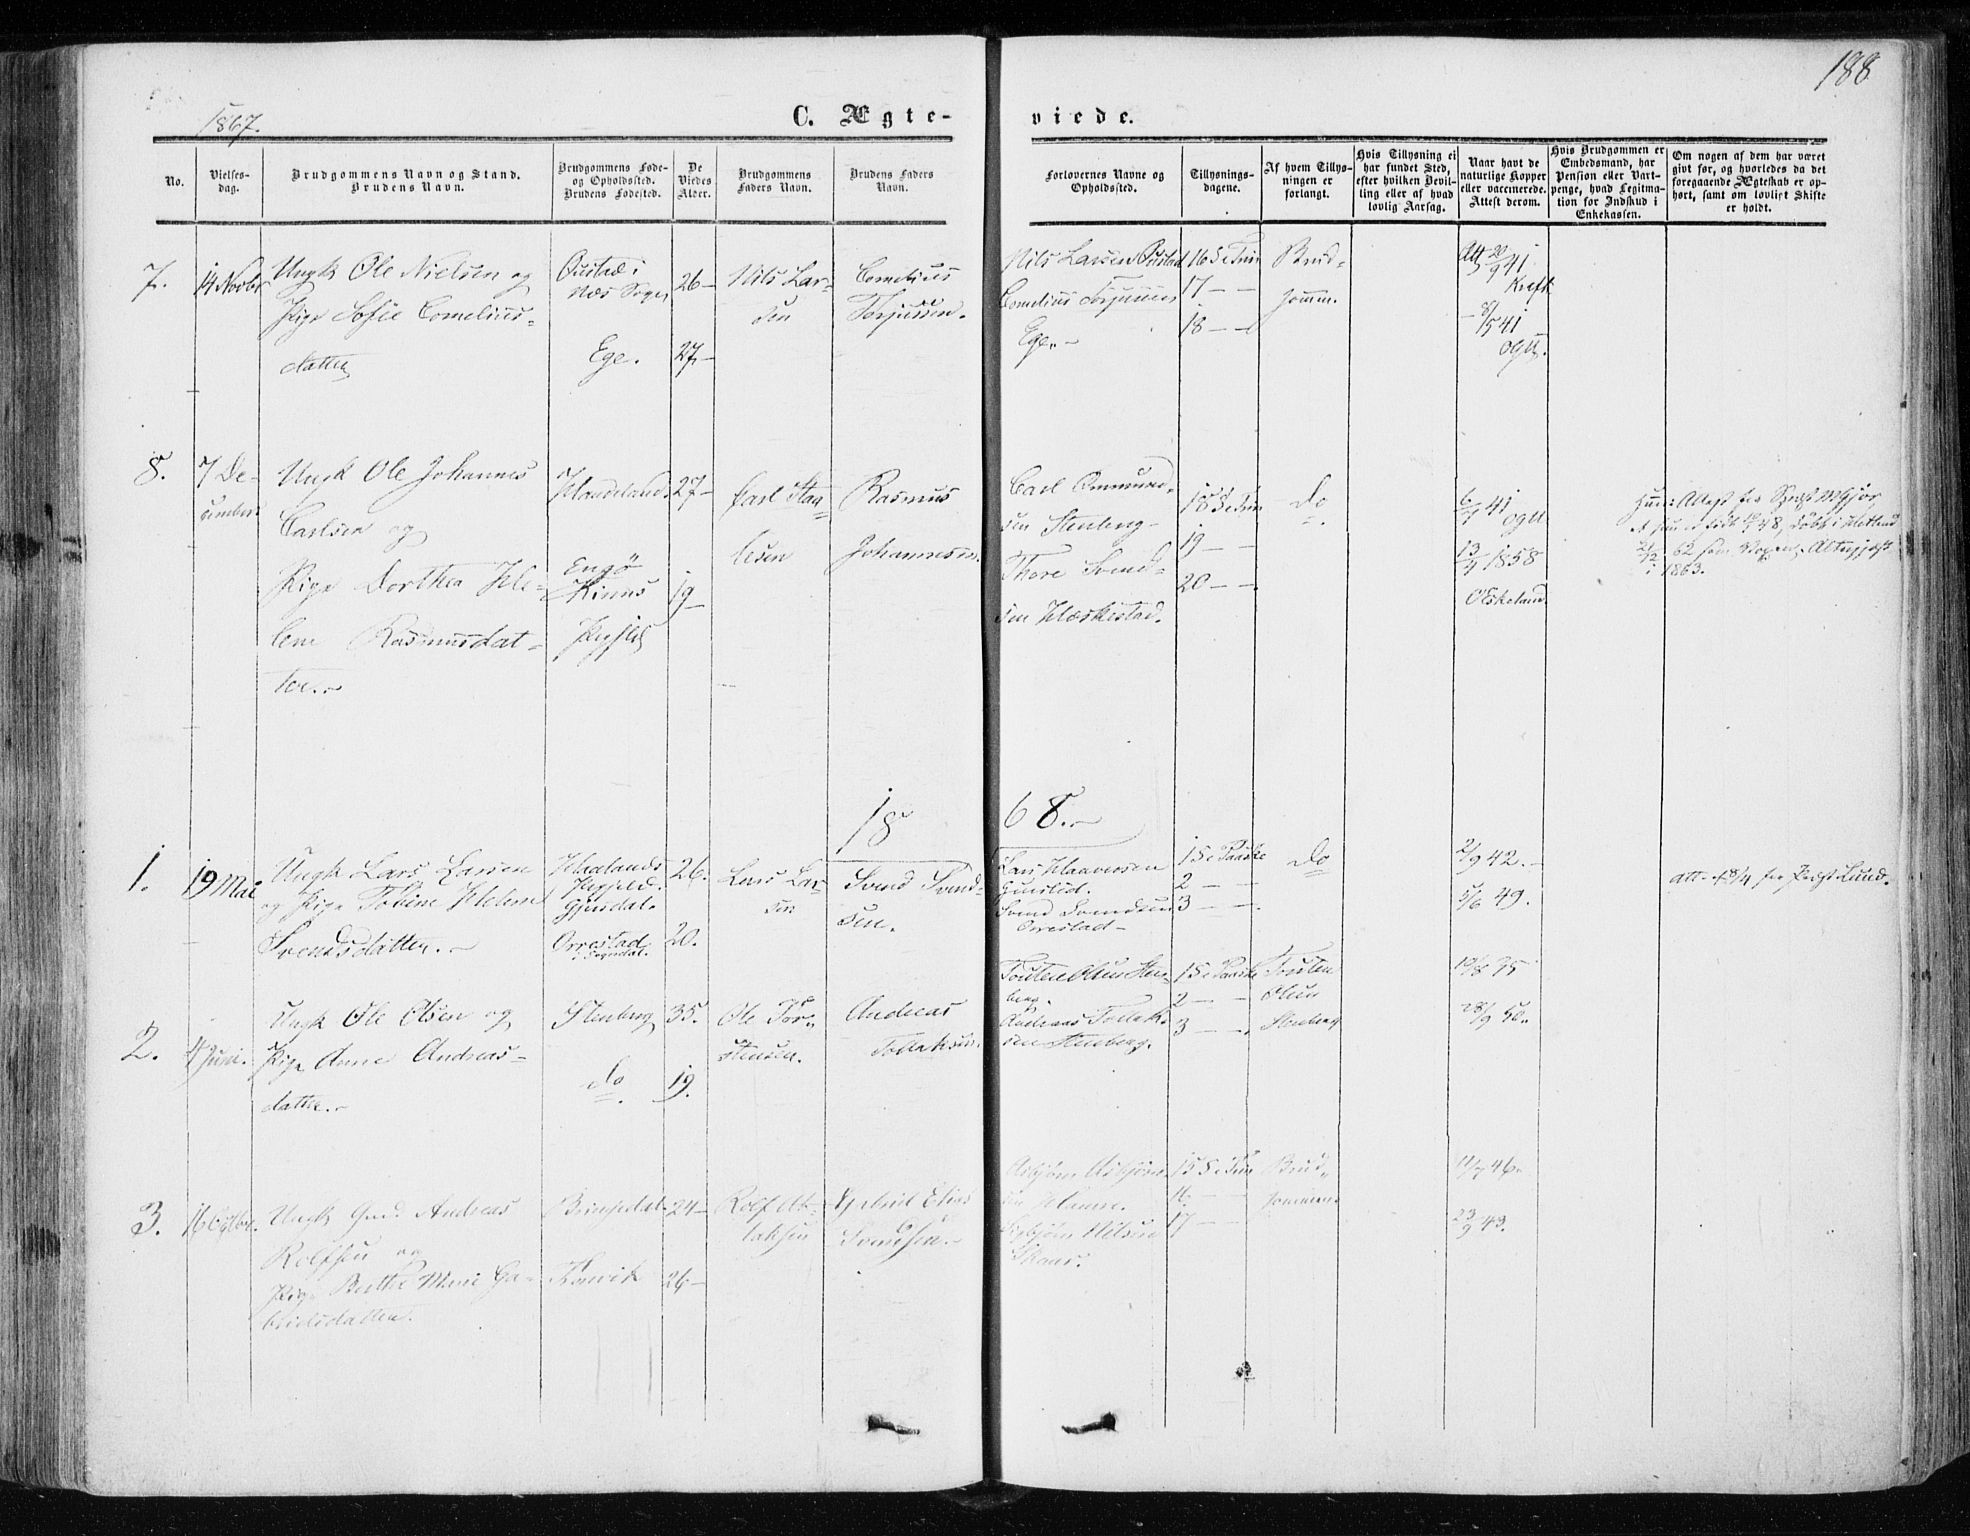 188
1867.
C. Ægte-
viede.
No.
Vielses-
dag.
Brudgommens Navn og Stand.
Brudens Navn.
Brudgommens Føde-
og Opholdssted.
Brudens Fødested.
De
Viedes
Alder.
Brudgommens
Faders Navn.
Brudens Faders
Navn.
Forlovernes Navne og
Opholdssted.
Tillysnings-
dagene.
Af hvem Tillys-
ningen er
forlangt.
Hvis Tillysning ei
har fundet Sted,
efter hvilken Bevil-
ling eller af hvad
lovlig Aarsag.
Naar havt de
naturlige Kopper
eller vaccinerede.
Attest derom.
Hvis Brudgommen er
Embedsmand, har
Pension eller Vart-
penge, hvad Legitima-
tion for Indskud i
Enkekassen.
Om nogen af dem har været
givt før, og hvorledes da det
foregaaende Ægteskab er op-
hørt, samt om lovligt Skifte
er holdt.
7.
14 Novbr
Ungk Ole Nielsen og
Pige Sofie Cornelius-
datter
i
Næs Sogn
Ege.
26-
27-
Nils Lar-
sen
Cornelius
Torjussen.
Nils Larsen
Cornelius Torjussen
Ege.
16 S e Trin
17 - -
18 - -
Brud-
gomm.
Att 20/9 41
- 8/5 41
8.
7 De-
cember
Ungk Ole Johannes
Carlsen og
Pige Dorthea He-
lene Rasmusdat-
ter.
Engø
27-
19-
Carl
Rasmus
Johannesen.
Carl Ommund-
sen Stenberg
Thore Svend-
sen Hæskestad.
18 S e Trin
19 - -
20 - -
do
41
13/7 1858
O Eskeland
1863.
1868.
1.
19 Mai
Ungk Lars Larsen
og Pige Tobine Helene
Svendsdatter.
Haalands
Gjesdal.
Orrestad
i Sogndal.
26.
20.
Lars Lar-
sen
Svend Svend-
sen.
Lars
Svend Svendsen
Orrestad
1 S e Paaske
2 - -
3 - -
do
2/9 42.
5/6 49.
Att. f 8/4 fra Præst Lund.
2.
4 Juni.
Ungk Ole Olsen og
Pige Anne Andreas-
datter.
Stenberg
do
35.
19.
Ole Tor-
stensen.
Andreas
Tollaksen.
Torsten Olsen Sten-
berg.
Andreas Tollak-
sen Stenberg.
1 S e Paaske
2 - -
3 - -
Torsten
Olsen
Stenberg
19/8 35
28/9 50.
3.
16 Octbr.
Ungk Gud. Andreas
Rolfsen og
Pige Berthe Marie Ga-
brielsdatter.
24-
26-
Rolf As-
laksen
Gabriel Elias
Svendsen.
Asbjørn Asbjørn-
sen
Asbjørn Nilsen
Skaar.
15 S e Trin
16 - -
17 - -
Brud-
gommen.
11/7 46.
23/9 43.